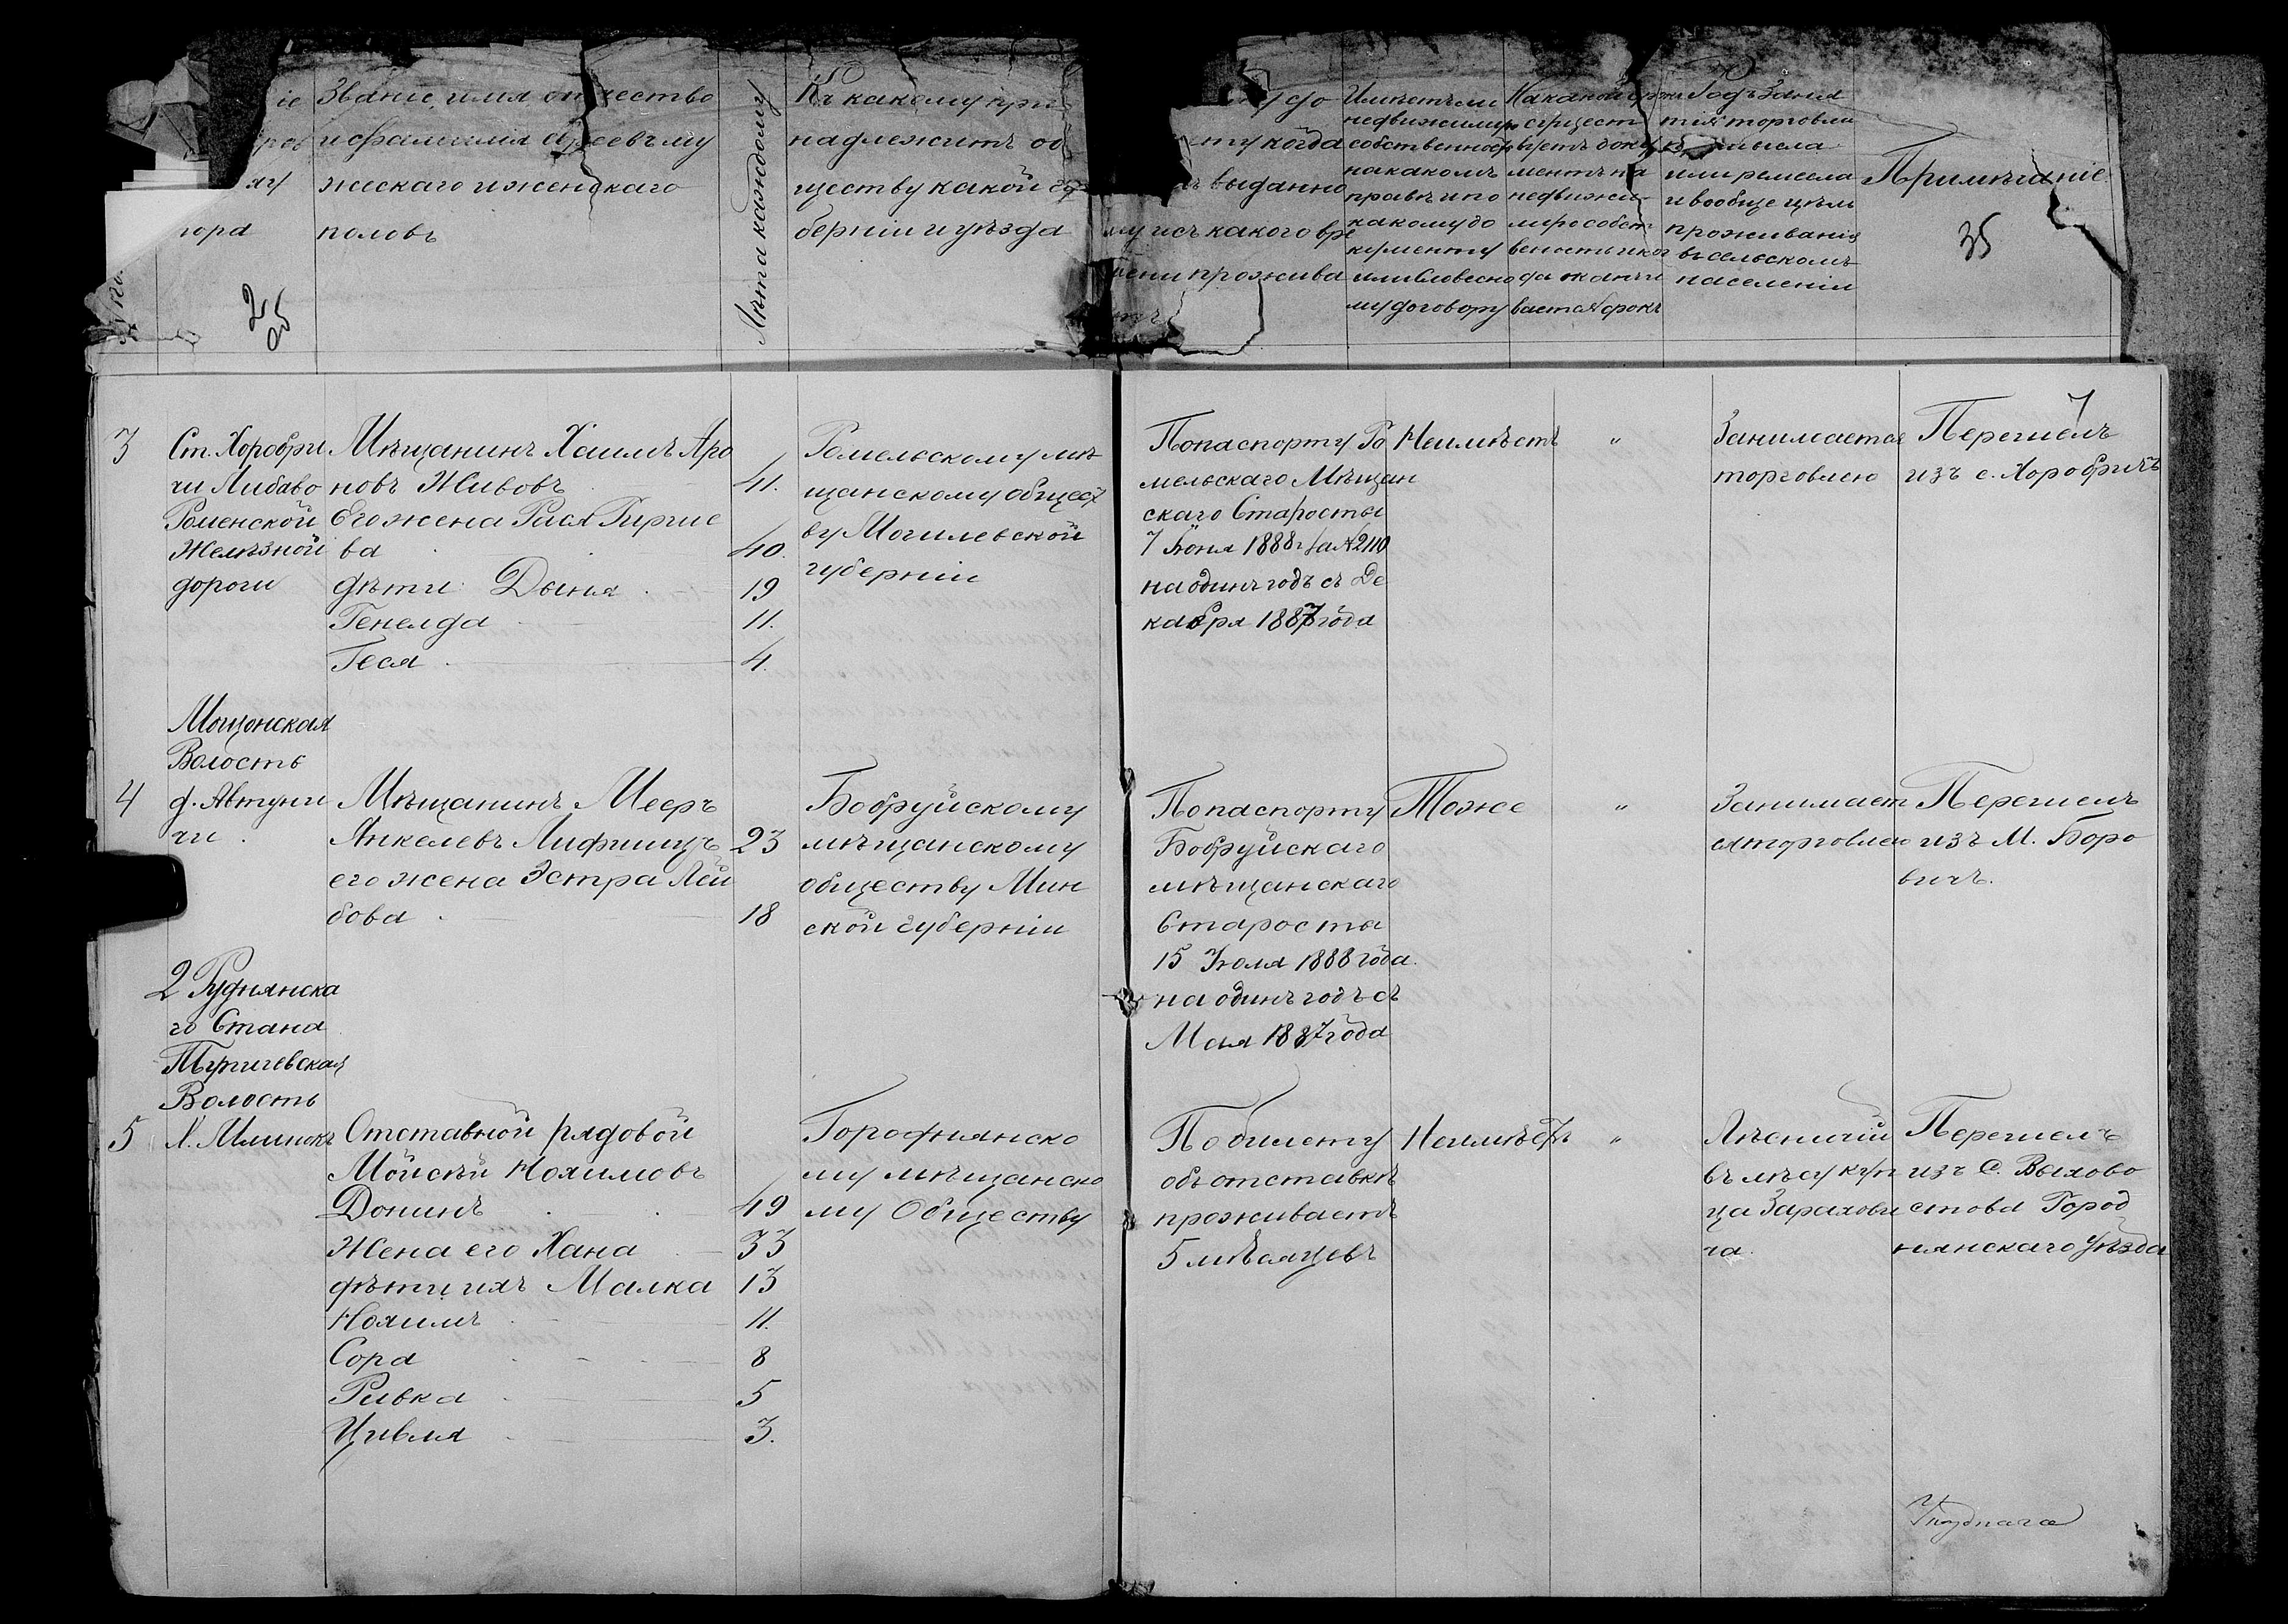 Званіе, имя отчество
и фамилія евреевъ му
жескаго и женскаго
половъ
Лѣта каждому
Къ какому при
надлежитъ об
ществу какой гу
берніи и уѣзда
когда
выданно
му и съ какого вре
мени прожива
етъ
Имѣетъ ли
недвижимую
собственность
на какомъ
правѣ и по
какому до
кументу
или словесно
му договору
На какой срокъ
сущест
вуетъ доку
ментъ на
недвижи
мую собст
веность и ког
да оканчи
вается срокъ
Родъ заня
тія торговли
промысла
или ремесла
и вообще цѣль
проживанія
въ сельскомъ
населеніи
Примѣчаніе
2
об
35
7
3
Ст. Хоробри
чи Либаво
Роменской
Желѣзной
дороги
Мѣщанинъ Хаимъ Аро
новъ Живовъ 41.
Его жена Рися Гирше
ва 40.
дѣти: Дыня 19
Генелда 11.
Геся 4.
Гомельскому мѣ
щанскому общест
ву Могилевской
губерніи
По паспорту Го
мельскаго Мѣщан
скаго Старосты
7 Іюня 1888 г. за № 2110
на одинъ годъ съ Де
кабря 1887 года
Неимѣетъ
"
Занимается
торговлею
Перешелъ
изъ с. Хоробричъ
Мощонская
Волость
4
д. Автуни
чи.
Мѣщанинъ Мееръ
Янкелевъ Лифшицъ 23
его жена Эстра Лей
бова 18
Бобруйскому
мѣщанскому
обществу Мин
ской губерніи
По паспорту
Бобруйскаго
мѣщанскаго
Старосты
15 Іюля 1888 года
на одинъ годъ съ
Мая 1887 года
Тоже
"
Занимает
ся торговлею
Перешелъ
изъ М. Боро
вичъ.
2 Руднянска
го Стана
Тупичевская
Волость
5
Х. Млинокъ
Отставной рядовой
Мойсѣй Нохимовъ
Донинъ 49
Жена его Хана 33
дѣти ихъ Малка 13
Нохимъ 11.
Сора 8
Ривка 5
Цивля 3.
Городнянско
му мѣщанско
му Обществу
По билету
объ отставкѣ
проживаетъ
5 мѣсяцевъ
Неимѣетъ
"
Лѣсничій
въ лѣсу куп
ца Зарахови
ча.
Перешелъ
изъ С. Выхово
стова Город
нянскаго Уѣзда